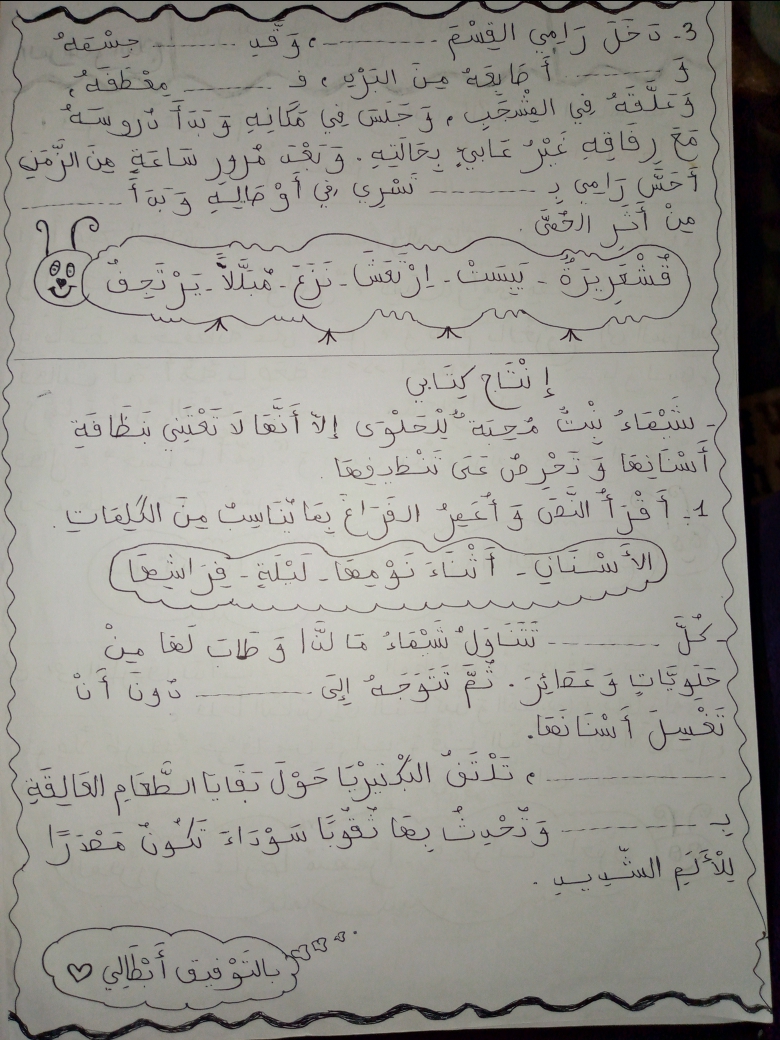 3- دَخَلَ رَامِي القِسْمَ ........... ، وَ قَدِ ........... جِسْمُهُ
وَ ........... أَصَابِعُهُ مِنَ البَرْدِ ، فَـ ........... مِعْطَفَهُ،
وَ عَلَّقَهُ فِي المِشْجَبِ ، وَ جَلَسَ فِي مَكَانِهِ وَ بَدَأَ دُرُوسَهُ
مَعَ رِفَاقِهِ غَيْرُ عَابِئٍ بِحَالَتِهِ. وَ بَعْدَ مُرُورِ سَاعَةٍ مِنَ الزَّمَنِ
أَحَسَّ رَامِي بِـ ........... تَسْرِي فِي أَوْصَالِهِ وَ بَدَأَ ...........
مِنْ أَثَرِ الحُمَّى .
قُشْعَرِيرَةٌ - يَبِسَتْ - اِرْتَعَشَ - نَزَعَ - مُبَلَّلاً - يَرْتَجِفُ
إِنْتَاج كِتَابي
- شَيْمَاءُ بِنْتٌ مُحِبَّةٌ لِلْحَلْوَى إلاّ أَنَّهَا لَا تَعْتَنِي بِنَظَافَةِ
أَسْنَانِهَا وَ تَحْرِصُ عَلَى تَنْظِيفِهَا
1- أَقْرَأُ النَّصَّ وَ أُعَمِّرُ الفَرَاغَ بِمَا يُنَاسِبُ مِنَ الكَلِمَاتِ.
الأَسْنَانِ - أَثْنَاءَ نَوْمِهَا - لَيْلَةٍ - فِرَاشِهَا
- كُلَّ ........... تَتَنَاوَلُ شَيْمَاءُ مَا لَذَّ وَ طَابَ لَهَا مِنْ
حَلَوِيَّاتٍ وَ عَصَائِرَ. ثُمَّ تَتَوَجَّهُ إِلَى ........... دُونَ أَنْ
تَغْسِلَ أَسْنَانَهَا.
........... ، تَلْتَفُّ البَكْتِيرْيَا حَوْلَ بَقَايَا الطَّعَامِ العَالِقَةِ
بِـ ........... وَ تُحْدِثُ بِهَا ثُقُوبًا سَوْدَاءَ تَكُونُ مَصْدَرًا
لِلْأَلَمِ الشَّدِيدِ .
بالتَوْفِيق أَبْطَالِي